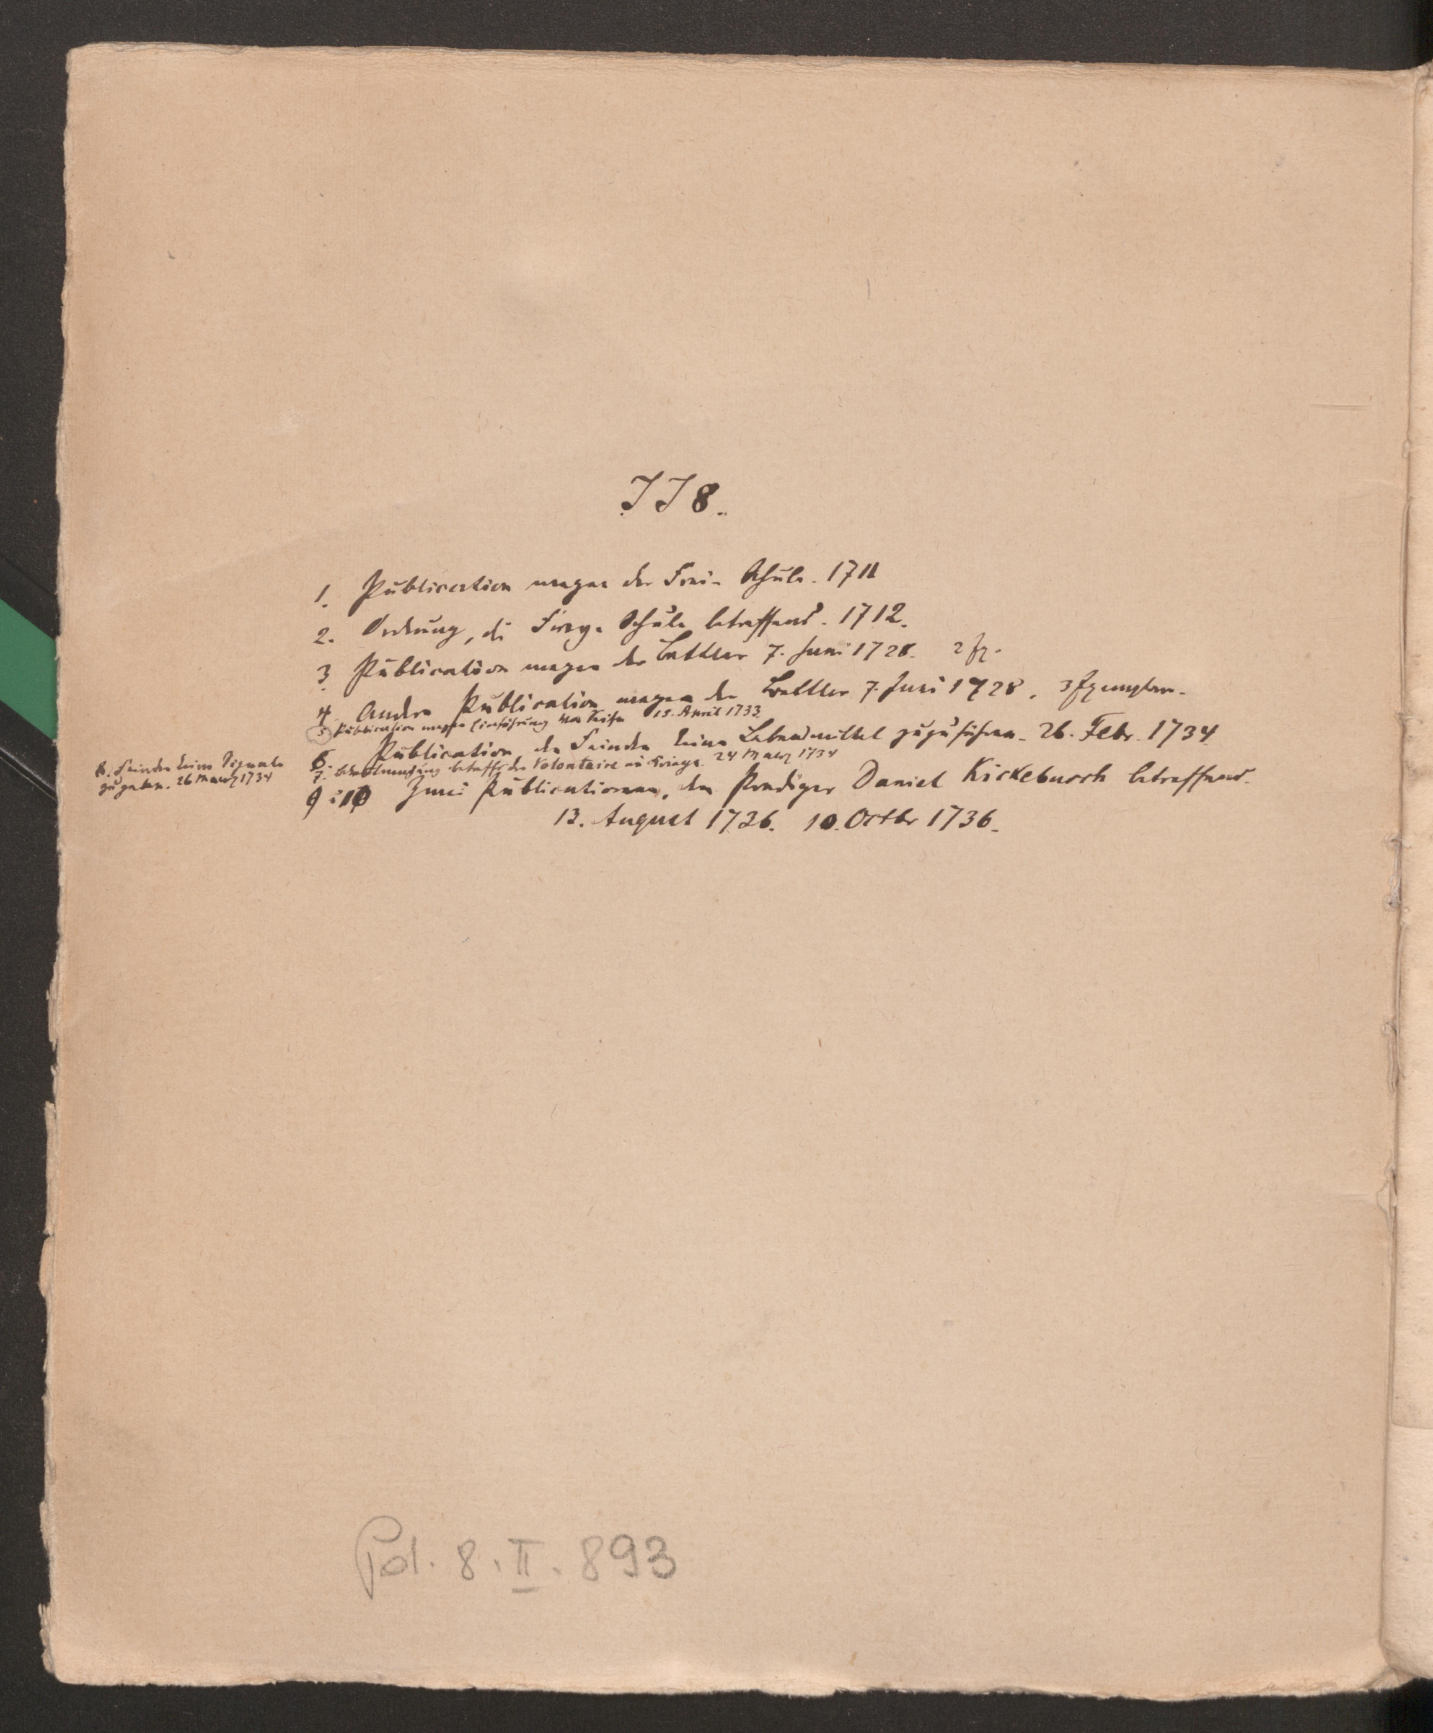 J J 8.
1. Publication wegen der Frei- Schule. 1711
2. Ordnung, die Frey- Schule betreffend. 1712.
3 Publication wegen der Bettler 7. Juni 1728. 2 Ex.
4. Andere Publication wegen der Bettler 7. Juni 1728. 3 Exemplare.
5 Publication wegen Einführung der 15. April 1733
6. Publication, den Feinden keine Lebensmittel zuzuführen. 26. Febr. 1734
7. betreffs der Volontaire im Kriege. 24 Maerz 1734
8. Feinden keine Signale
zu geben. 26 Maerz 1734
9 : 10 Zwei Publicationen, den Prediger Daniel Kickebusch betreffend.
13. August 1736. 10. Octbr 1736.
Pol. 8. II. 893